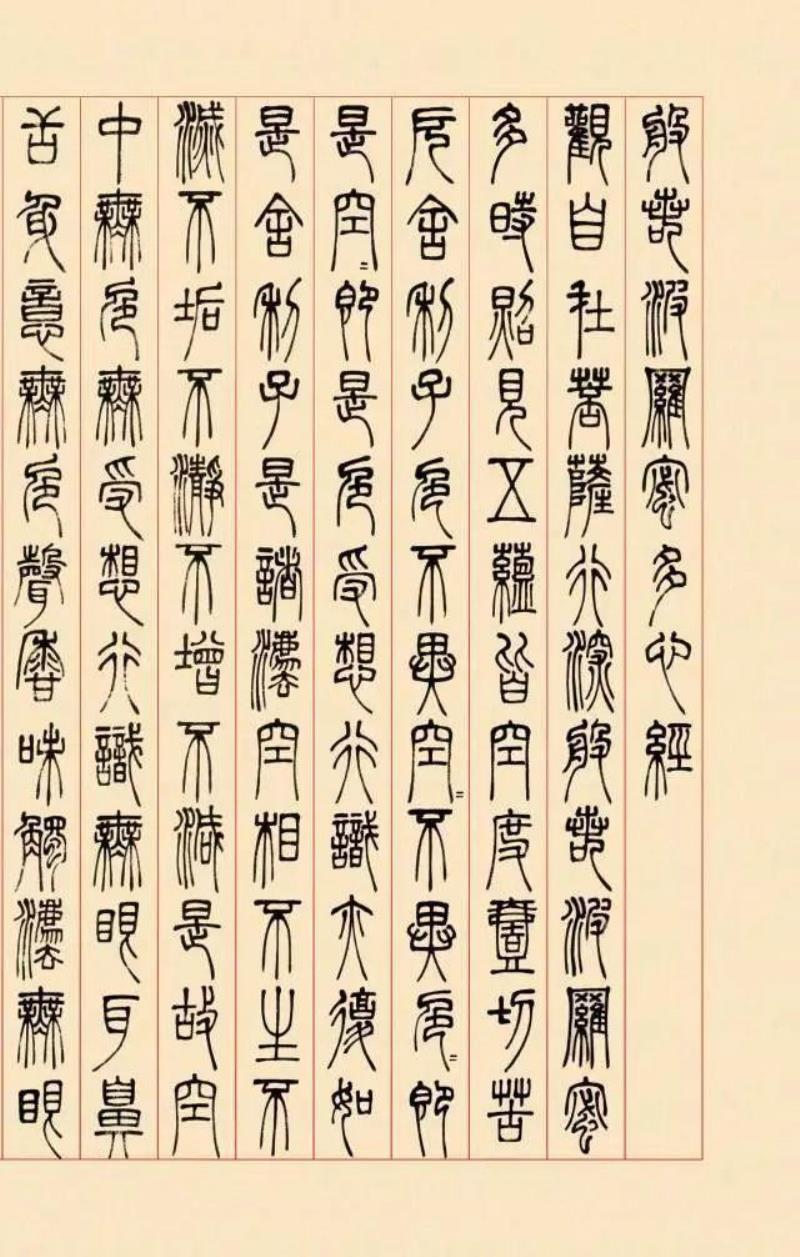 般若波羅蜜多心經
觀自在菩薩行深般若波羅蜜
多時照見五蘊皆空度壹切苦
厄舍利子色不異空〻不異色〻即
是空〻即是色受想行識亦復如
是舍利子是諸灋空相不生不
滅不垢不瀞不增不減是故空
中無色無受想行識無眼耳鼻
舌身意無色聲香味觸灋無眼